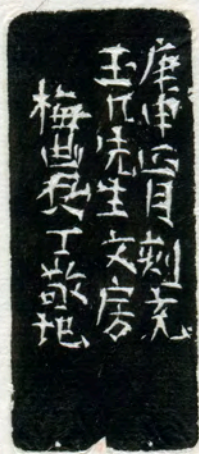 庚申正月刻充
玉几先生文房
梅農丁敬記